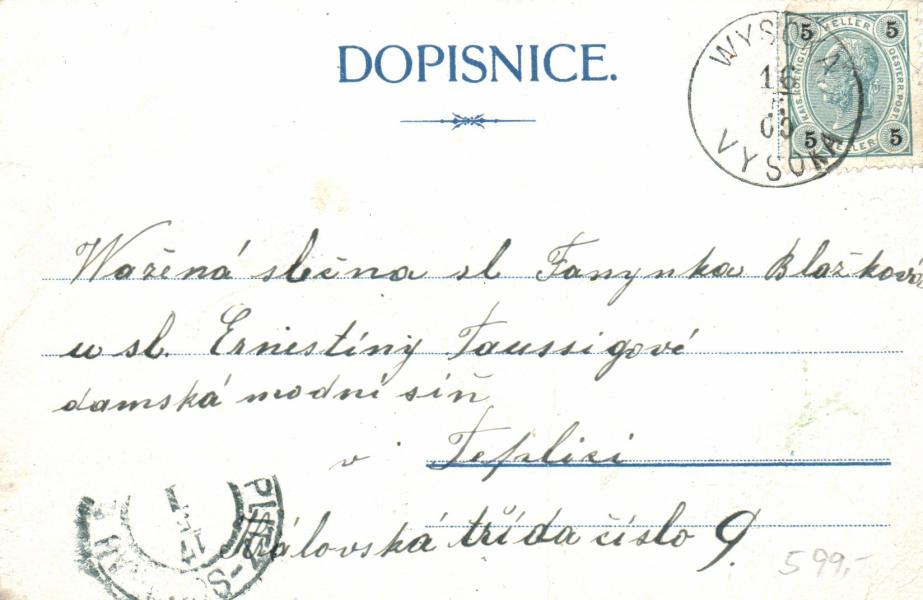 DOPISNICE.
WYSOKA
16
05
VYSOKÁ
5 HELLER 5
KAIS. KOENIGL. OESTERR. POST.
5 HELLER 5
Wažená slečna sl Fanynka Blažková
u sl. Ernestiny Taussigové
damská modní síň
v Teplici
Královská třída číslo 9
599,-